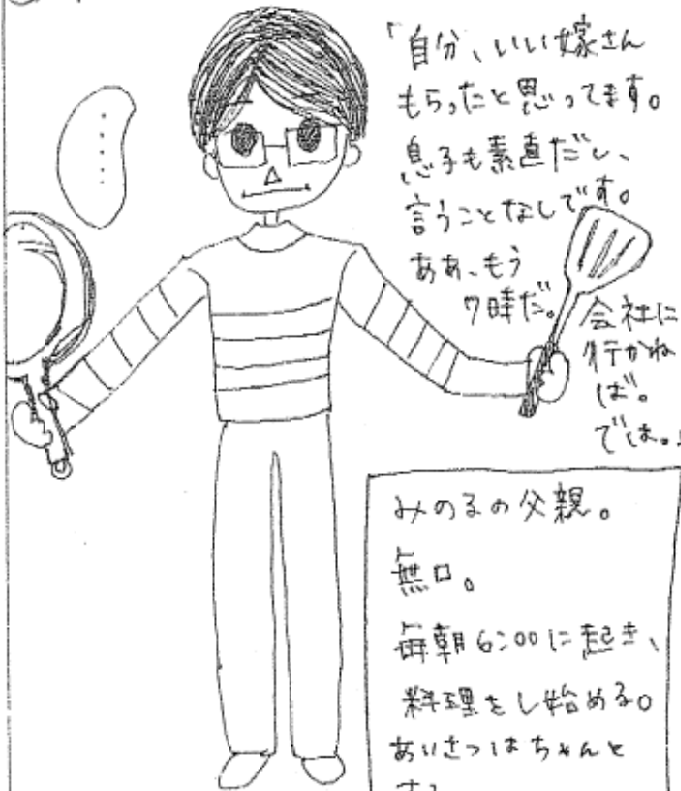 「自分、いい嫁さん
もらったと思ってます。
息子も素直だし、
言うことなしです。
ああ、もう
7時だ。
会社に
行かね
ば。
では。」
みのるの父親。
無口。
毎朝6:00に起き、
料理をし始める。
あいさつはちゃんと